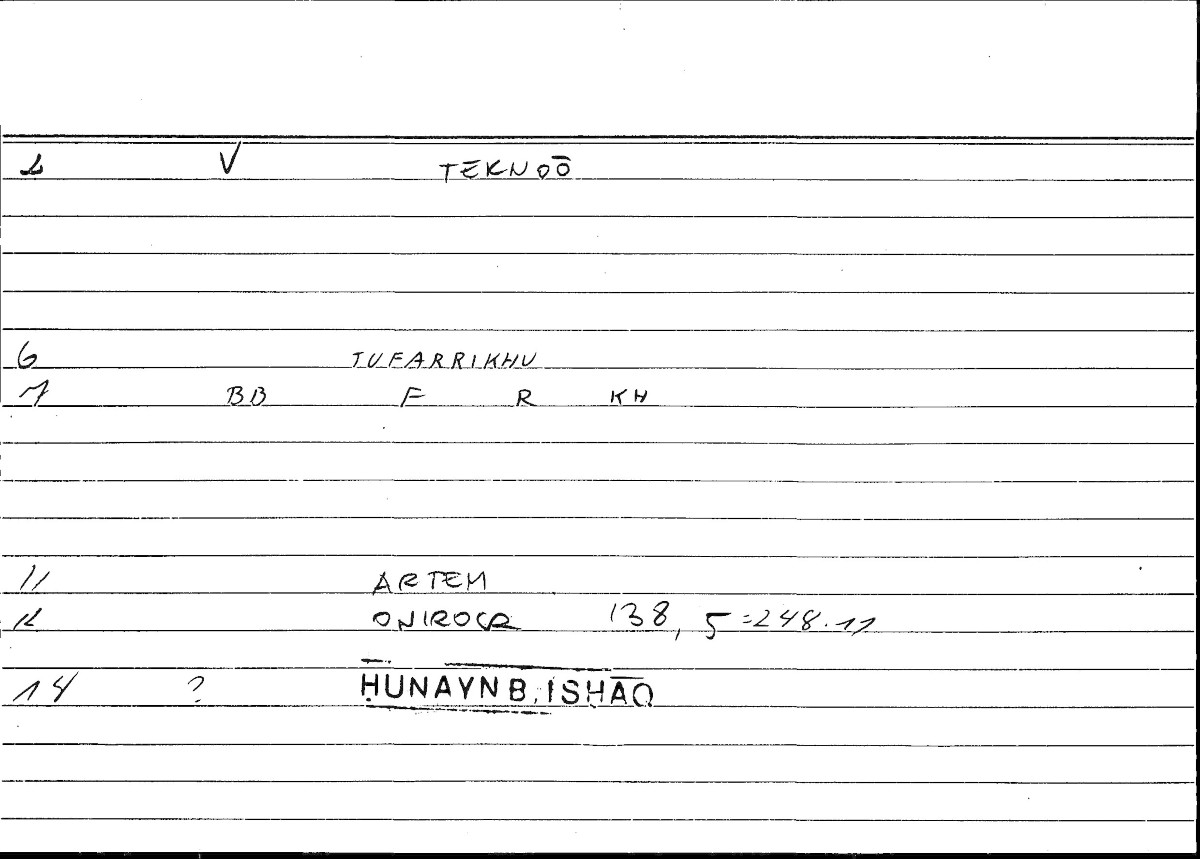 2 V TEKNOŌ
6 TUFARRIKHU
7 BB F R KH
11 ARTEM
12 ONIROCR 138, 5=248.11
14 ? ḤUNAYN B. ISḤĀQ